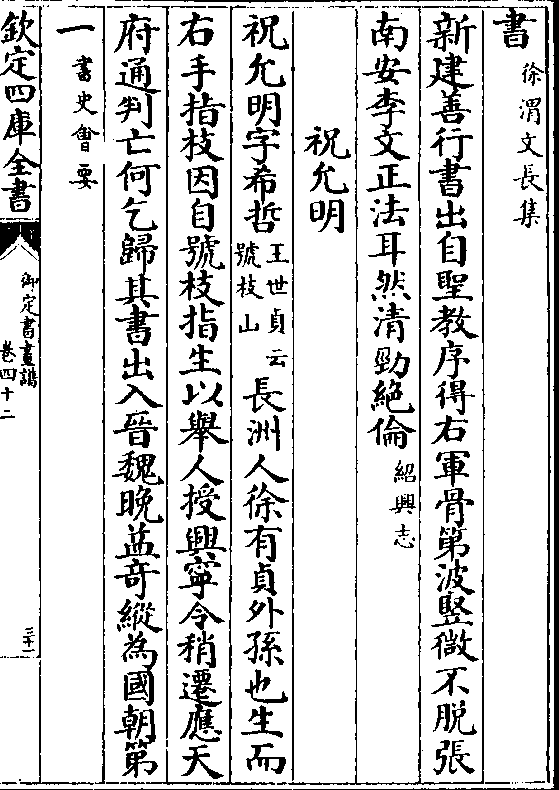 書徐渭文長集
新建善行書出自聖教序得右軍骨第波豎微不脫張
南安李文正法耳然清勁絕倫紹興志
祝允明
祝允明字希哲王世貞云號枝山長洲人徐有貞外孫也生而
右手指枝因自號枝指生以舉人授興寧令稍遷應天
府通判亡何乞歸其書出入晉魏晚益奇縱為國朝第
一書史會要
欽定四庫全書
御定書畫譜
卷四十二
三十一